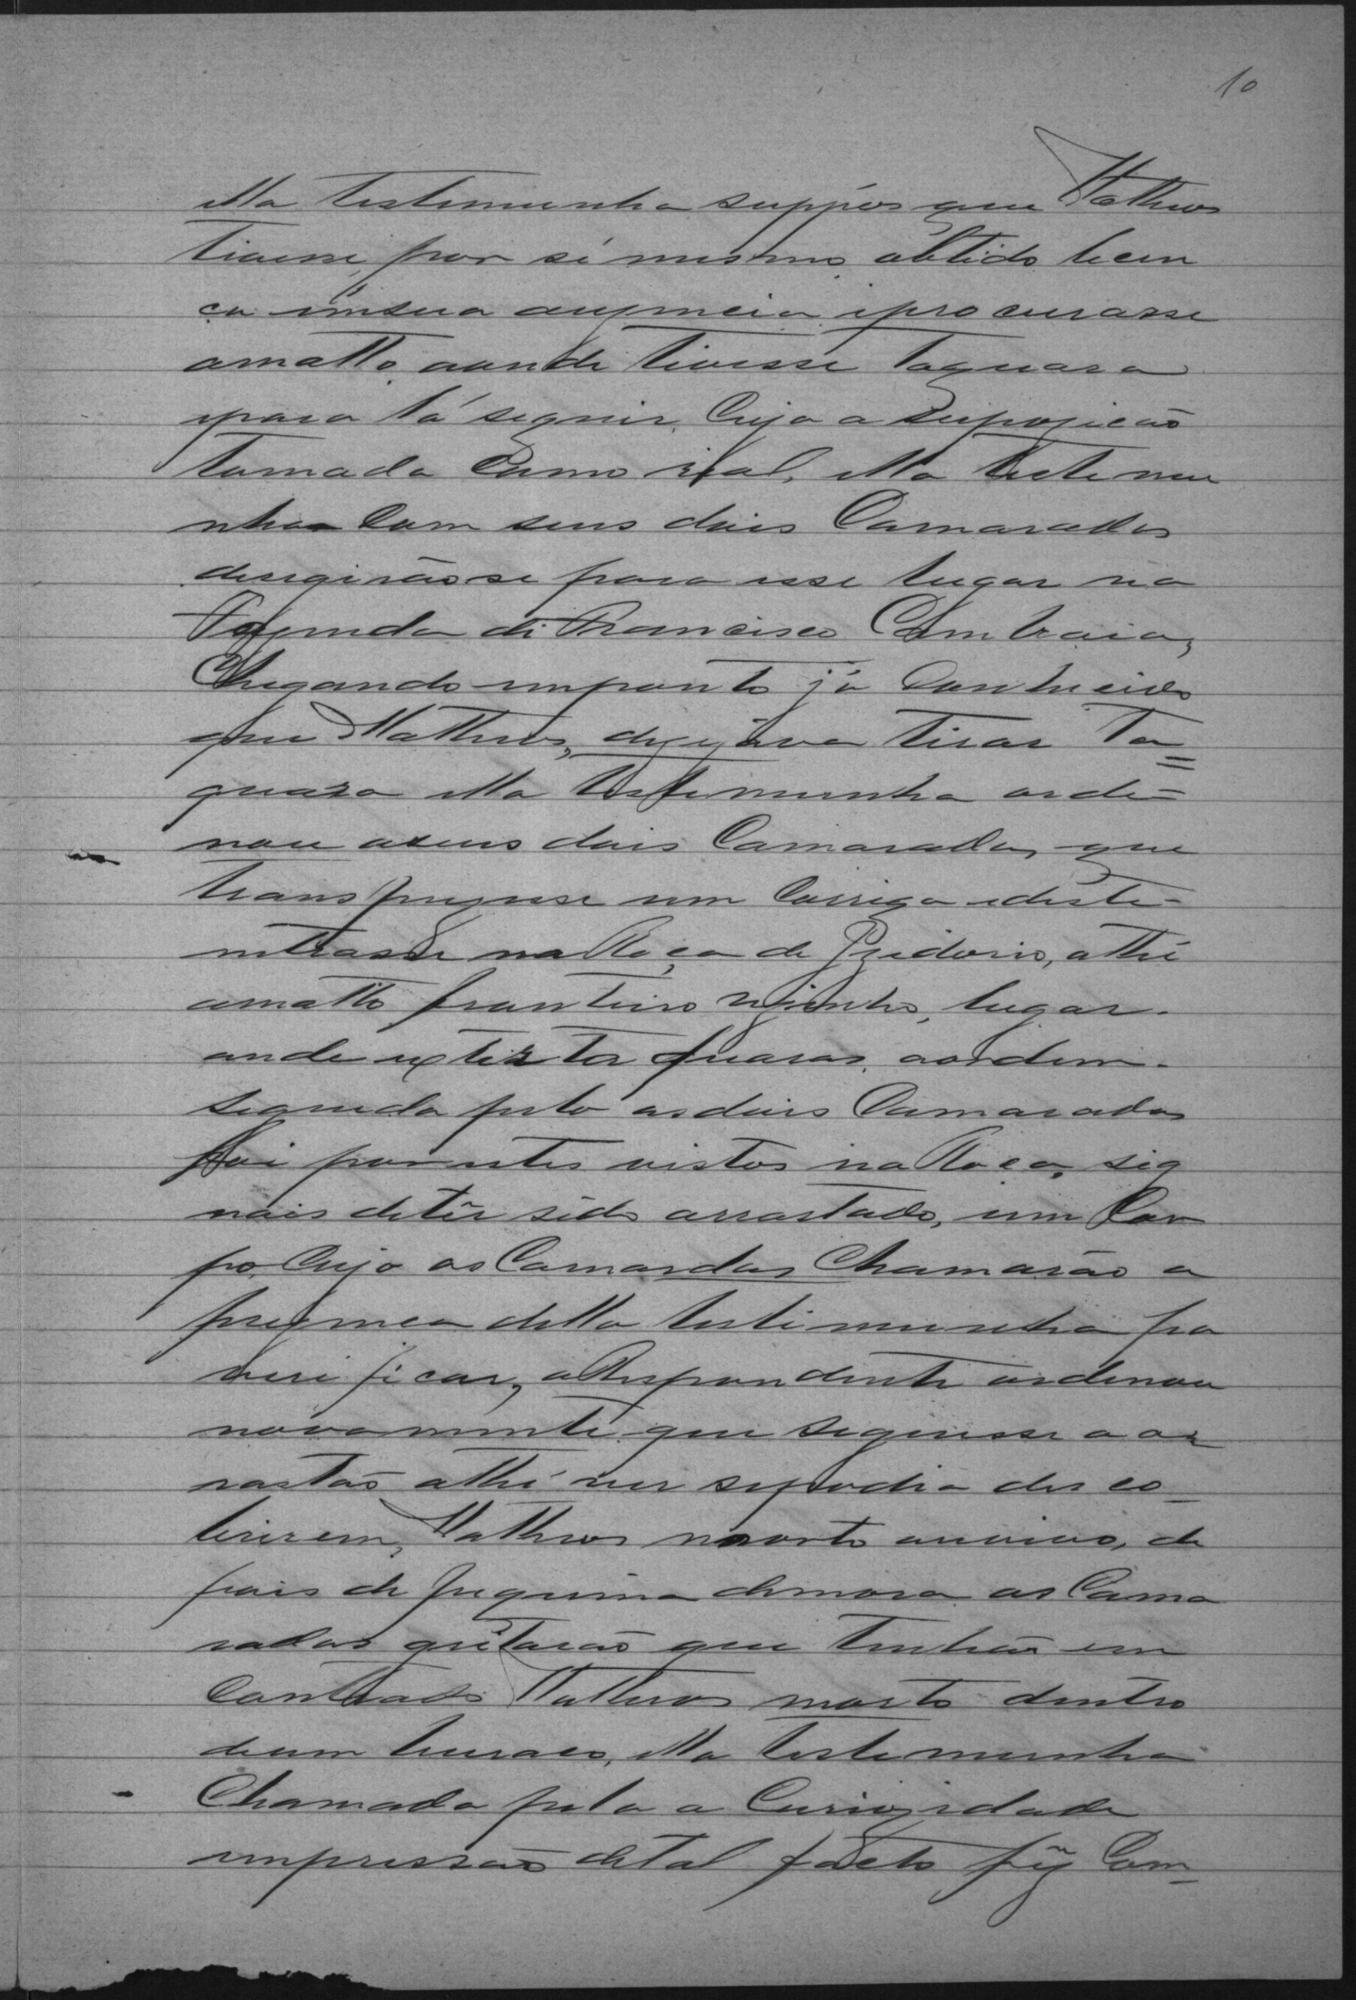 10
ella testemunha suppós que Matheos
tivesse por si mesmo obtido licen
ca em sua auzencia eprocurasse
amatto aonde tivesse taquara
epara lá seguir. Cuja a supozicão
tomada Como rial, ella testemu
nha Com seus dois Camaradas
deregirãose para esse lugar na
Fazenda di Francisco Cambraia,
Chegando emponto já Conhecido
que Matheos, dezejava tirar ta=
quara ella testemunha orde=
nou aseus dois Camaradas, que
transpuzesse um Corrigo edeste-
entrasse na Roça de Izidorio, athé
amatto fronteiro vizinho, lugar.
onde extista quaras. aordem.
seguida pelo os dois Camaradas
foi por estes vistos na Roca, sig
naes detêr sido arrastado, um Cor
po. Cujo os Camardas Chamarão a
prezenca della testimunha pa
verificar, a Respondente ordenou
novamente que seguisse a ar
rastão athé ver sepodia desco-
brirem, Matheos morto ouvivo, de
pois de pequena demora os Cama
radas gritarão que tinhão en
Contrado Matheos morto dentro
deum buraco, ella testemunha
Chamada pela a Curiozidade
empressão detal facto fez Com=